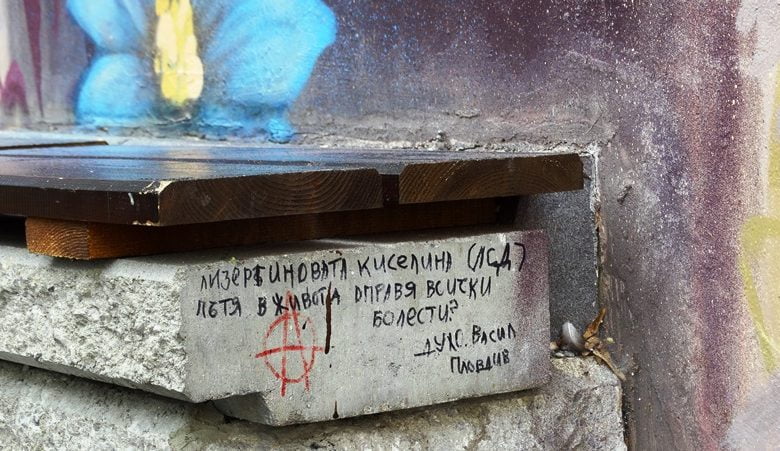 лизергиновата киселина (лсд)
пътя в живота оправя всички
болести?
духо. Васил
Пловдив